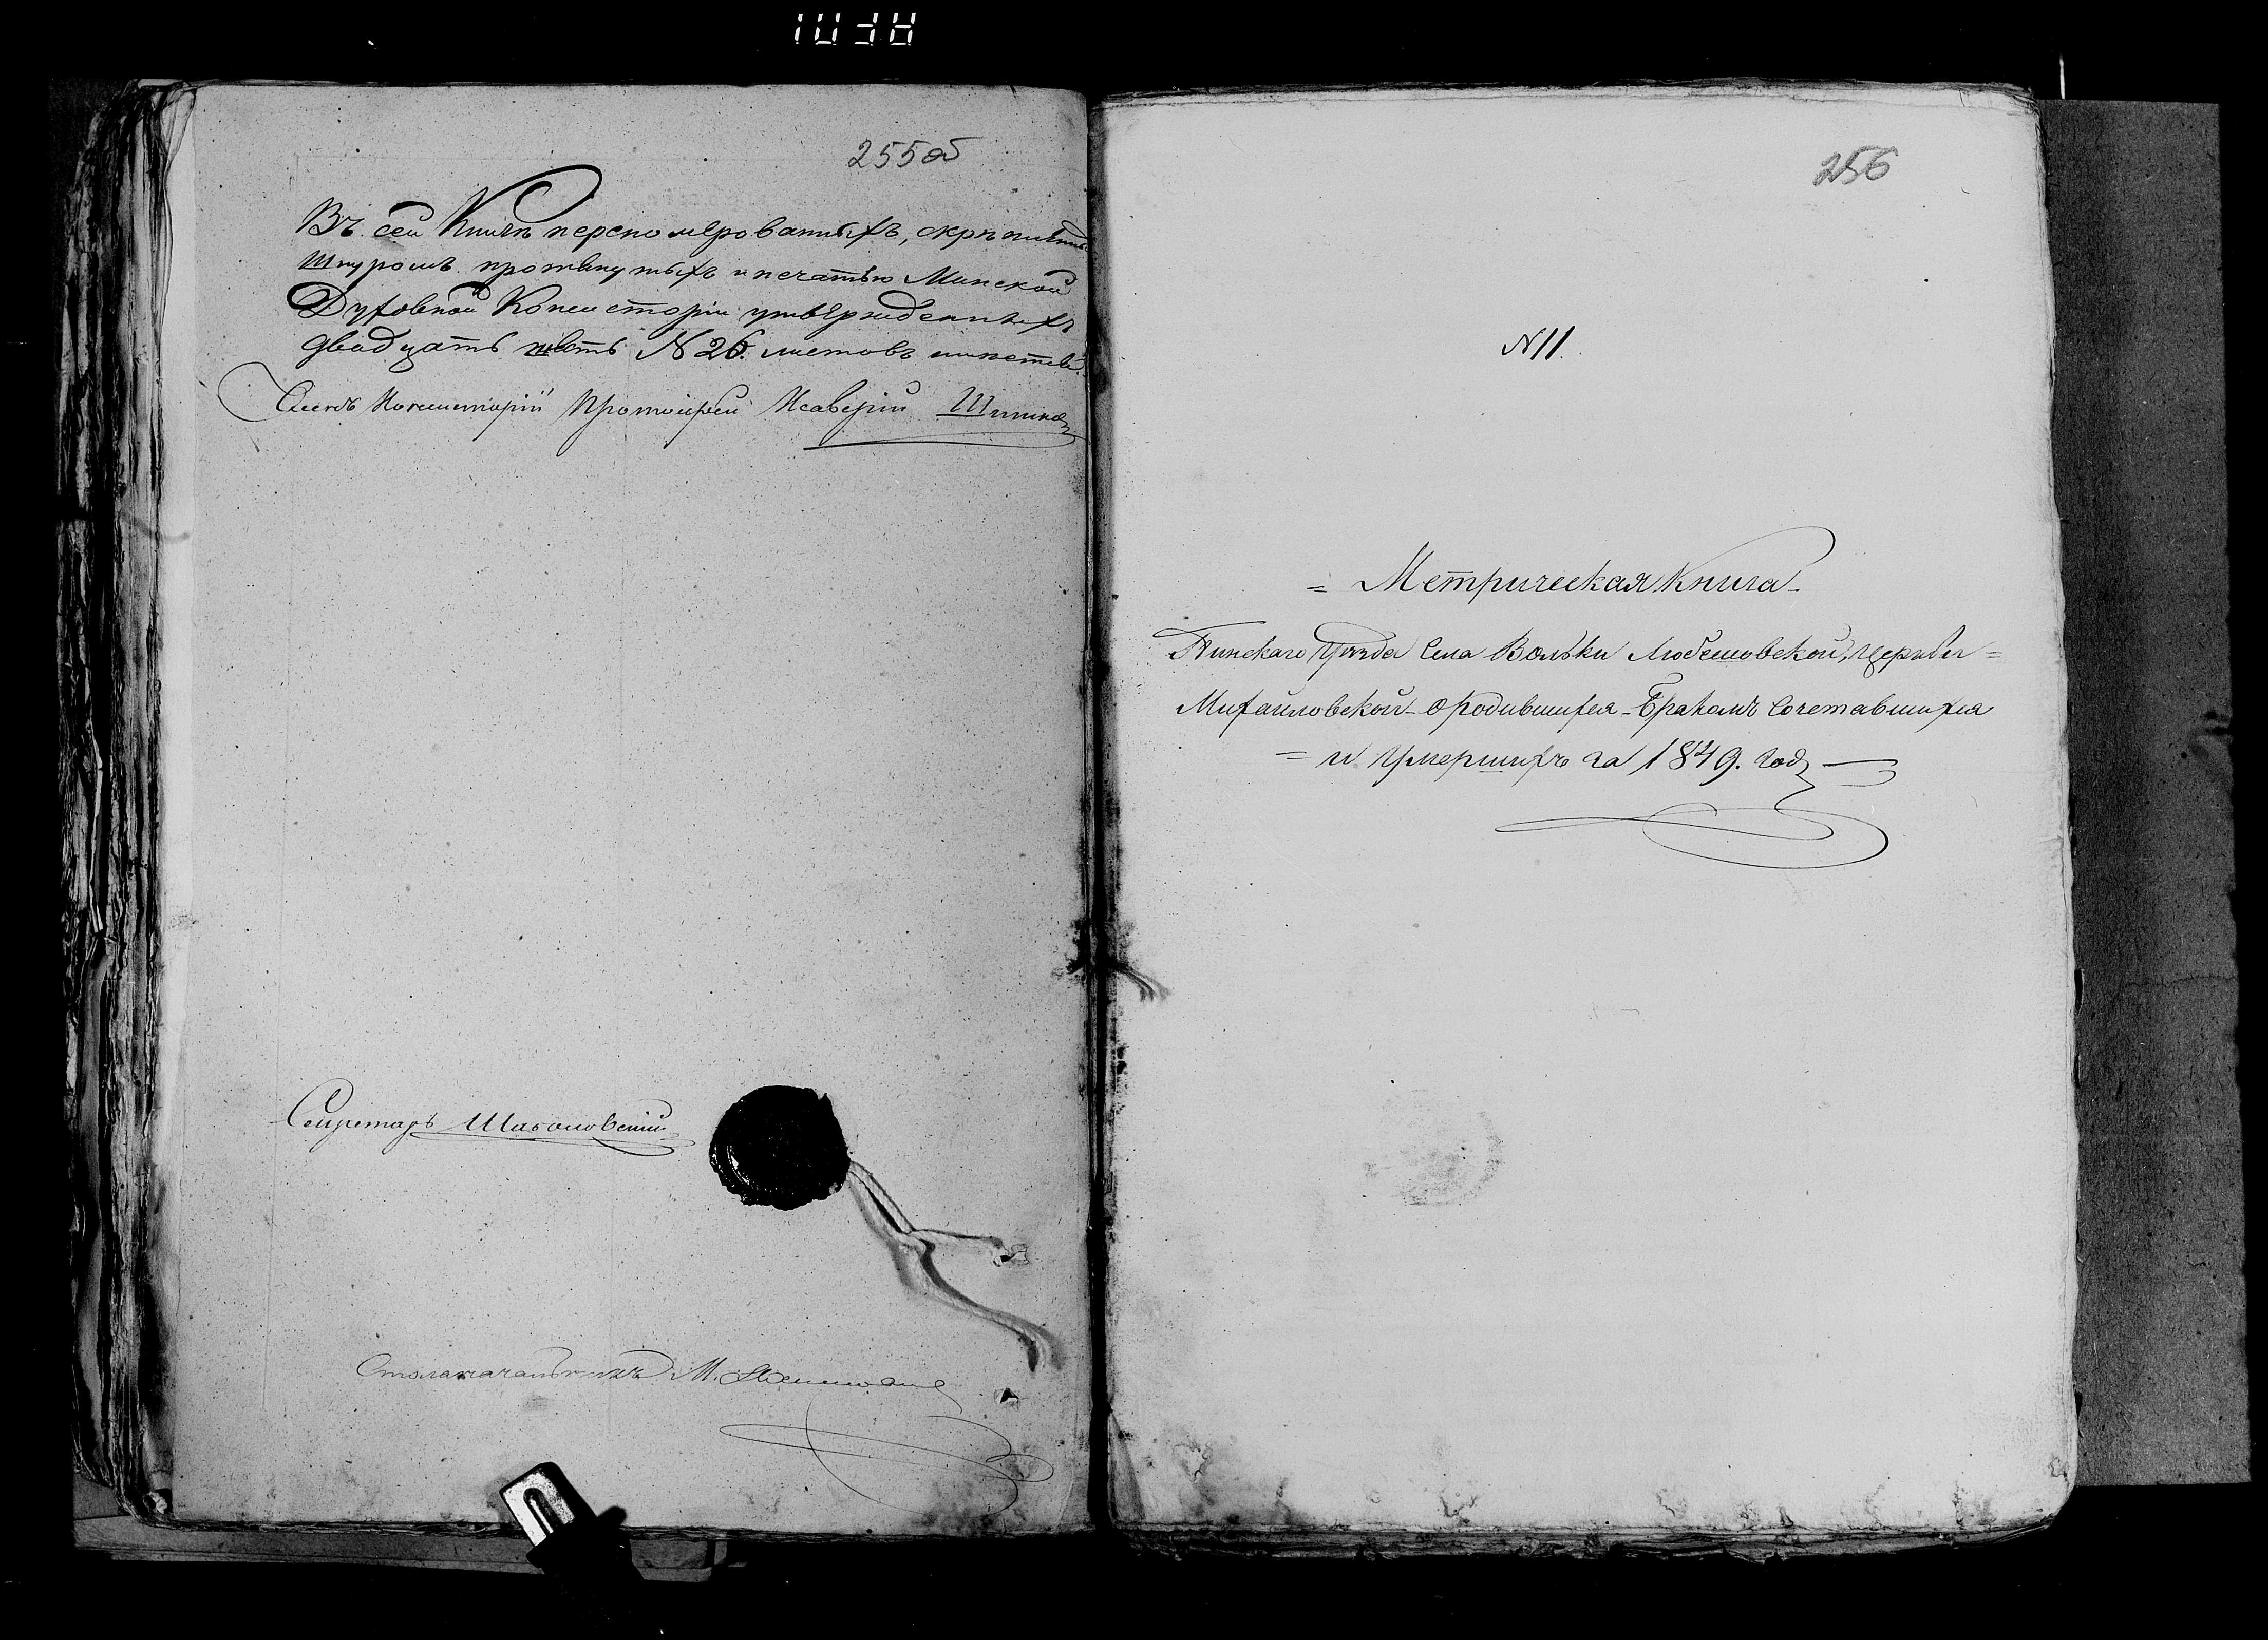 255об
Въ сей Книгѣ перепомерованныхъ, скрѣпленныхъ
Шнуромъ протянутыхъ и печатью Минской
Духовной Консисторіи утвержденныхъ
двадцать шесть N 26. листовъ имѣется.
Членъ Консисторіи Протоіерей Ксаверій
Секретарь
Столоначальникъ М.
256
N 11.
= Метрическая Книга -
Пинскаго Уѣзда Села Вольки Любешовской, Церкви =
Михайловской - о родившихся - Бракомъ Сочетавшихся
= и Умершихъ за 1849. годъ